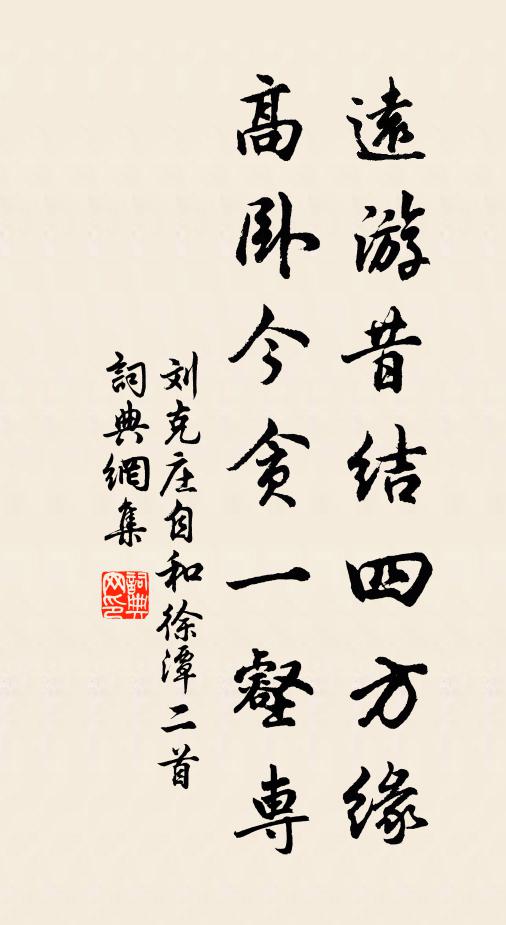 遠游昔结四方緣
高卧今貪一壑專
刘克庄自和徐潭二首
詞典網集
詞典网印